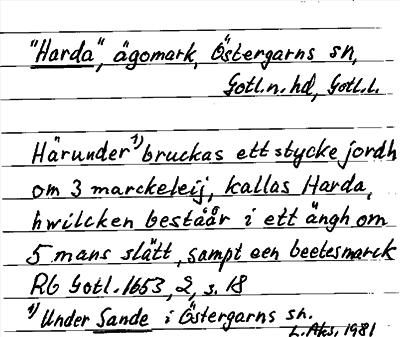 "Harda", ägomark, Östergarns sn,
Gotl.n.hd, Gotl.l.
Härunder¹⁾ bruckas ett stycke jordh
om 3 marckeleij, kallas Harda,
hwilcken beståår i ett ängh om
5 mans slått, sampt een beetesmarck
RG Gotl. 1653, 2, s. 18
¹⁾ Under Sande i Östergarns sn.
L. Aks, 1981